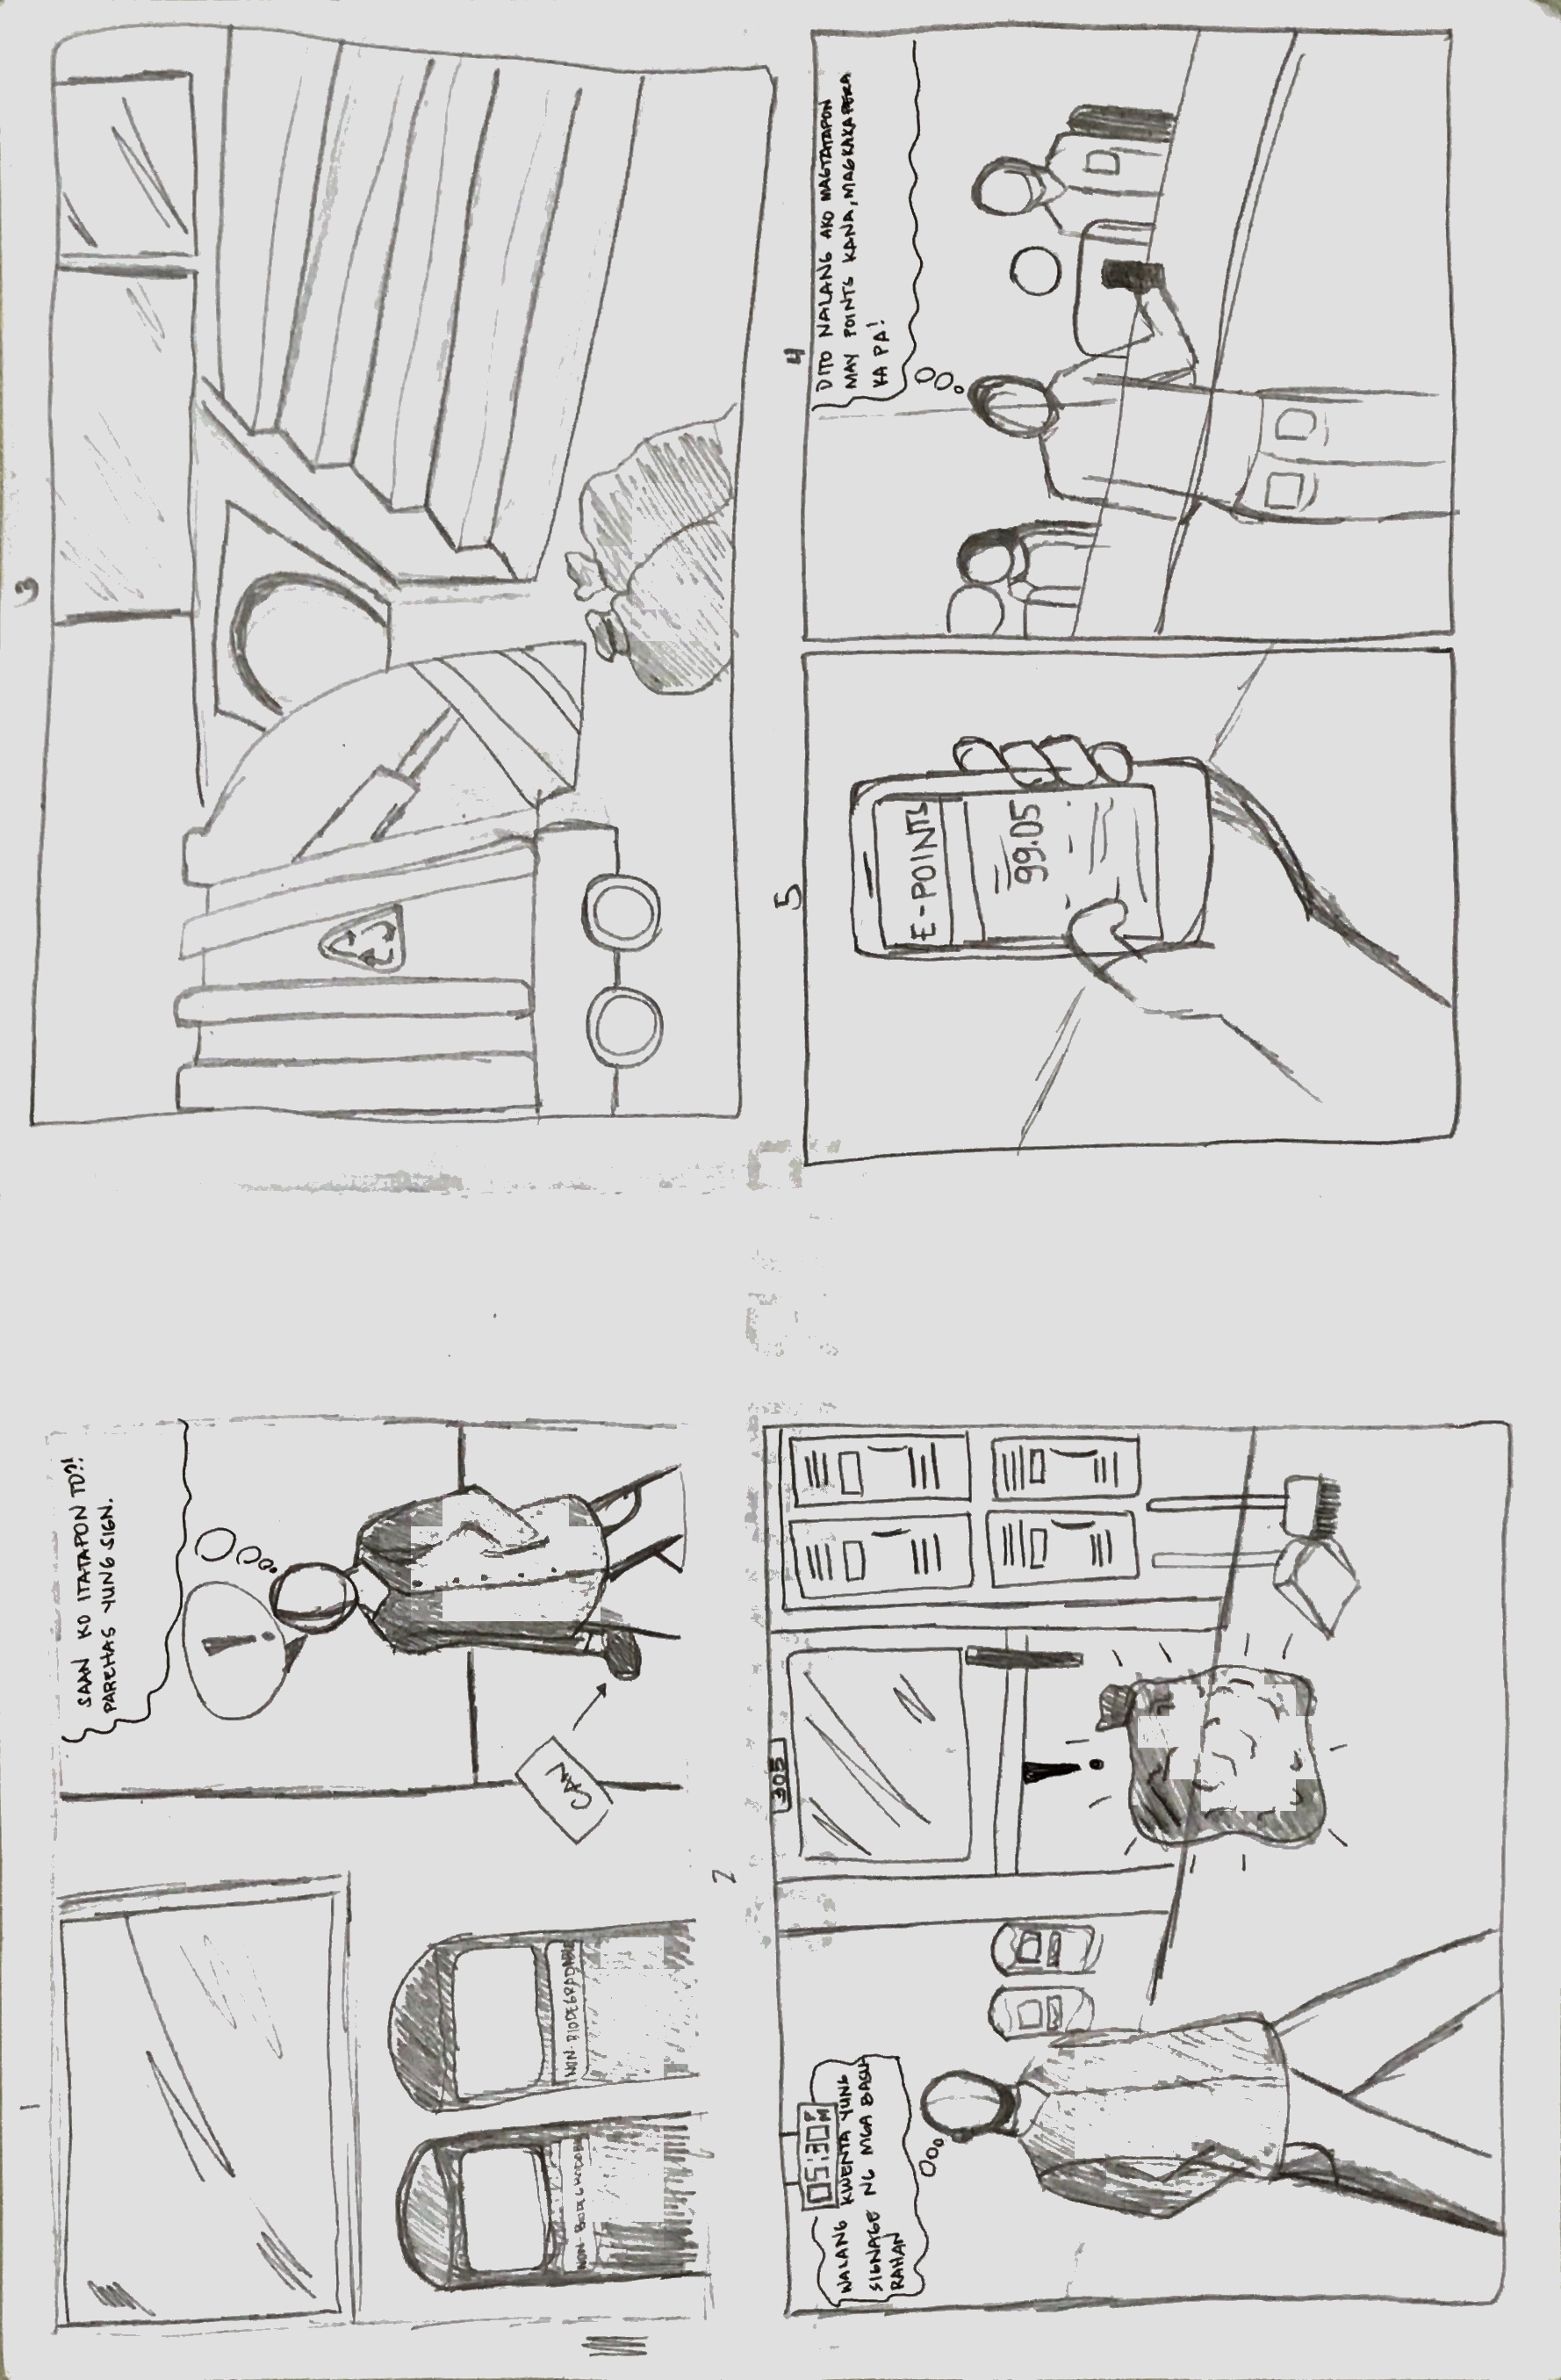 1
SAAN KO ITATAPON TO?!
PAREHAS YUNG SIGN.
!
CAN
NON-BIODEGRADABLE
NON-BIODEGRADABLE
2
05:30PM
WALANG KWENTA YUNG
SIGNAGE NG MGA BASU
RAHAN
305
!
3
4
DITO NALANG AKO MAGTATAPON
MAY POINTS KANA, MAGKAKAPERA
KA PA!
5
E-POINTS
99.05